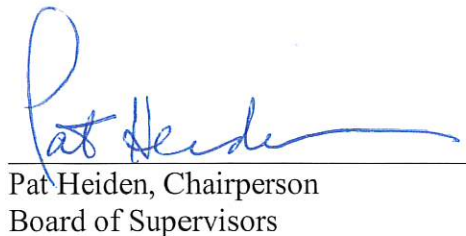 Pat Heiden
Pat Heiden, Chairperson
Board of Supervisors